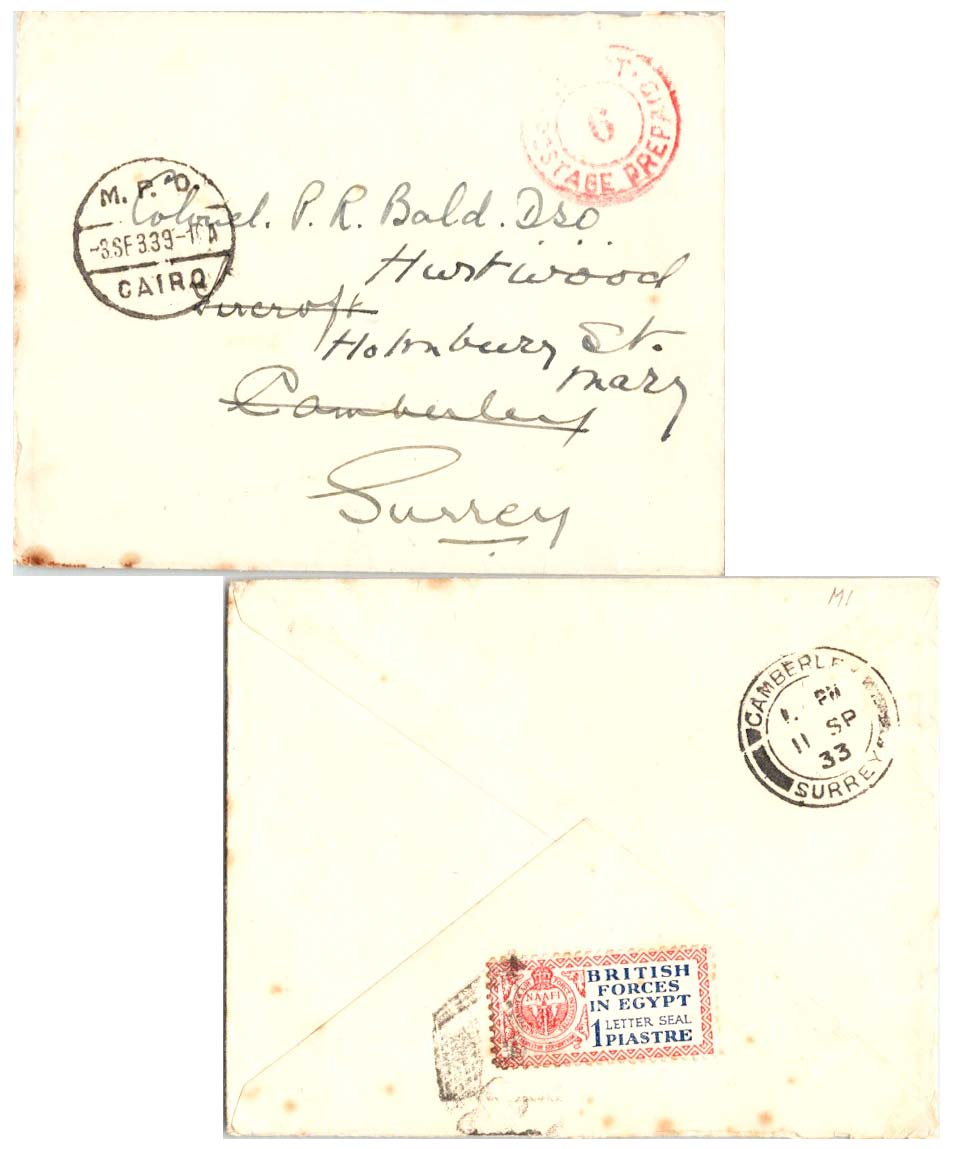 6
POSTAGE PREPAID
M. P. O.
CAIRO
Colonel. P. R. Bald. DSO
Hurtwood
Holmbury St.
Mary
Camberley
Surrey
M1
CAMBERLEY
PM
11 SP
33
SURREY
NAAFI
BRITISH
FORCES
IN EGYPT
LETTER SEAL
1 PIASTRE